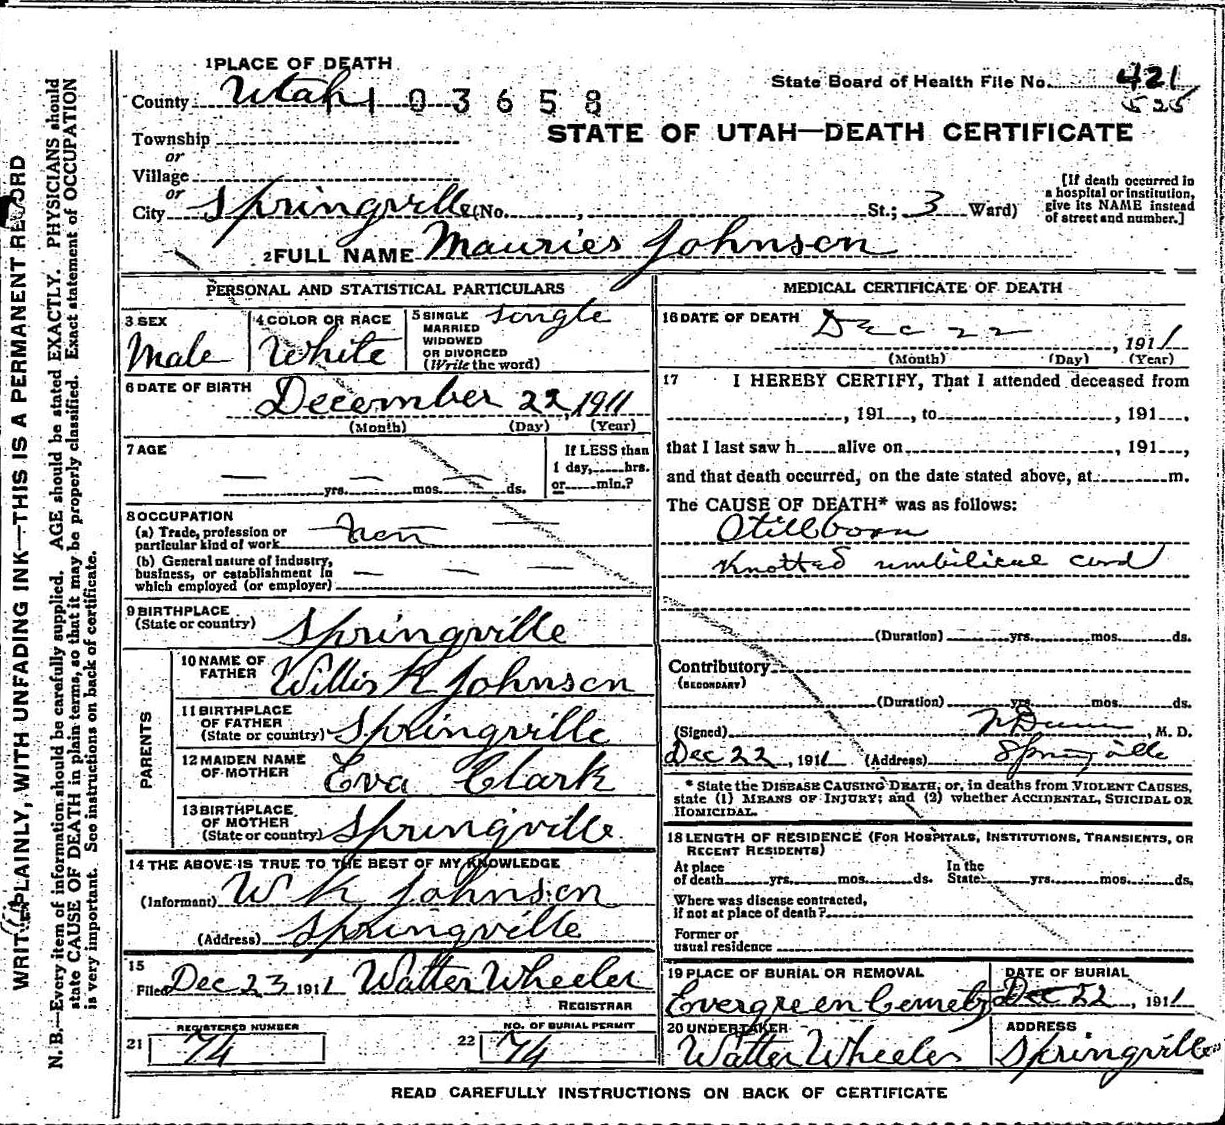 1 PLACE OF DEATH
County Utah 103658
State Board of Health File No. 421
525
STATE OF UTAH—DEATH CERTIFICATE
Township
or
Village
or
City Springville (No. , St.; 3 Ward)
[If death occurred in a hospital or institution, give its NAME instead of street and number.]
2 FULL NAME Mauries Johnson
PERSONAL AND STATISTICAL PARTICULARS
3 SEX
Male
4 COLOR OR RACE
White
5 SINGLE MARRIED WIDOWED OR DIVORCED (Write the word) single
6 DATE OF BIRTH
December 22, 1911
(Month) (Day) (Year)
7 AGE
— yrs. — mos. — ds.
If LESS than 1 day, hrs. or min.?
8 OCCUPATION
(a) Trade, profession or particular kind of work — non — —
(b) General nature of industry, business, or establishment in which employed (or employer) — — — —
9 BIRTHPLACE
(State or country) Springville
PARENTS
10 NAME OF FATHER Willis K Johnson
11 BIRTHPLACE OF FATHER (State or country) Springville
12 MAIDEN NAME OF MOTHER Eva Clark
13 BIRTHPLACE OF MOTHER (State or country) Springville
14 THE ABOVE IS TRUE TO THE BEST OF MY KNOWLEDGE
(Informant) W K Johnson
(Address) Springville
15
Filed Dec 23 1911 Walter Wheeler
REGISTRAR
21 REGISTERED NUMBER
74
22 NO. OF BURIAL PERMIT
74
MEDICAL CERTIFICATE OF DEATH
16 DATE OF DEATH Dec 22, 1911
(Month) (Day) (Year)
17 I HEREBY CERTIFY, That I attended deceased from
, 191 , to , 191 ,
that I last saw h alive on , 191 ,
and that death occurred, on the date stated above, at m.
The CAUSE OF DEATH* was as follows:
Stillborn
Knotted umbilical cord
(Duration) yrs. mos. ds.
Contributory
(SECONDARY)
(Duration) yrs. mos. ds.
(Signed) Dunn, M. D.
Dec 22, 1911 (Address) Springville
* State the DISEASE CAUSING DEATH; or, in deaths from VIOLENT CAUSES,
state (1) MEANS OF INJURY; and (2) whether ACCIDENTAL, SUICIDAL OR
HOMICIDAL.
18 LENGTH OF RESIDENCE (FOR HOSPITALS, INSTITUTIONS, TRANSIENTS, OR
RECENT RESIDENTS)
At place of death yrs. mos. ds. In the State yrs. mos. ds.
Where was disease contracted,
if not at place of death?
Former or
usual residence
19 PLACE OF BURIAL OR REMOVAL
Evergreen Cemety
DATE OF BURIAL
Dec 22, 1911
20 UNDERTAKER
Walter Wheeler
ADDRESS
Springville
READ CAREFULLY INSTRUCTIONS ON BACK OF CERTIFICATE
WRITE PLAINLY, WITH UNFADING INK—THIS IS A PERMANENT RECORD
N. B.—Every item of information should be carefully supplied. AGE should be stated EXACTLY. PHYSICIANS should
state CAUSE OF DEATH in plain terms, so that it may be properly classified. Exact statement of OCCUPATION
is very important. See instructions on back of certificate.